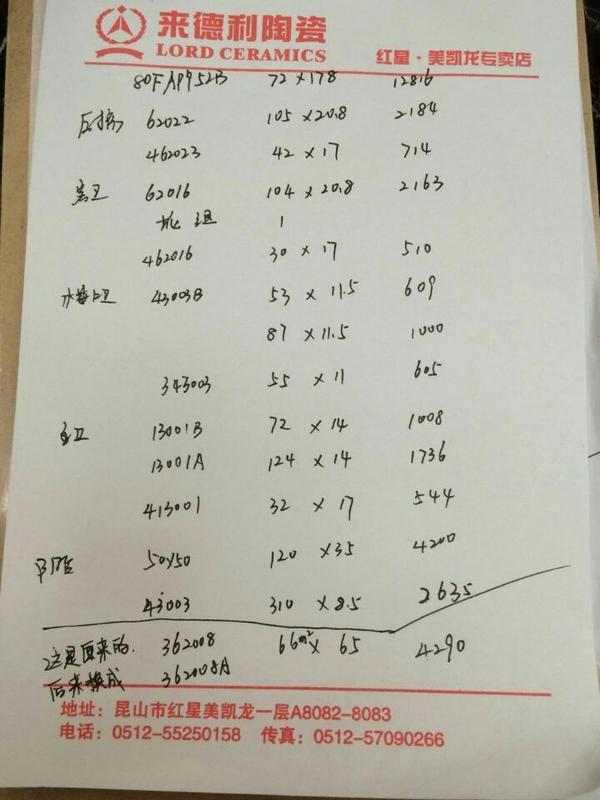 来德利陶瓷
LORD CERAMICS
红星·美凯龙专卖店
80FAP952B 72×178 12816
62022 105×20.8 2184
462023 42×17 714
62016 104×20.8 2163
1
462016 30×17 510
43003B 53×11.5 609
87×11.5 1000
343003 55×11 605
主卫 13001B 72×14 1008
13001A 124×14 1736
413001 32×17 544
50×50 120×35 4200
43003 310×8.5 2635
这是原来的. 362008 66m²× 65 4290
后来换成 362008A
地址：昆山市红星美凯龙一层A8082-8083
电话：0512-55250158 传真：0512-57090266